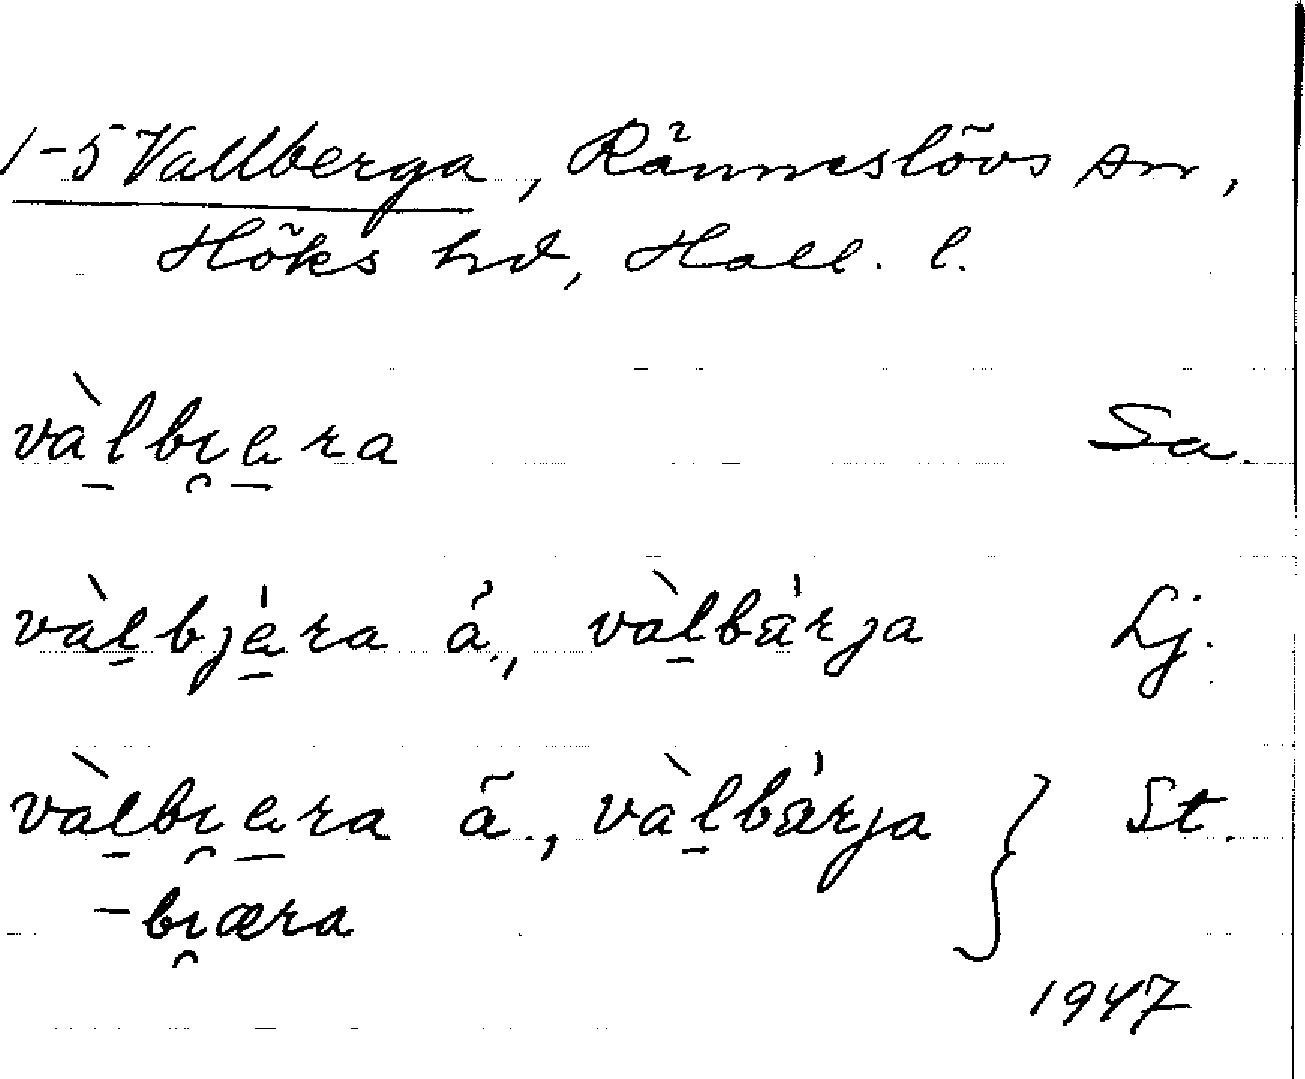 1-5 Vallberga, Ränneslövs sn,
Höks hd, Hall. l.
và̠lbi̯a̠ra Sa.
vàl̠bjá̠ra ä., vàl̠bärja Lj.
vàl̠bi̯a̠ra ä., vàl̠bärja } St.
-bi̯æra
1947